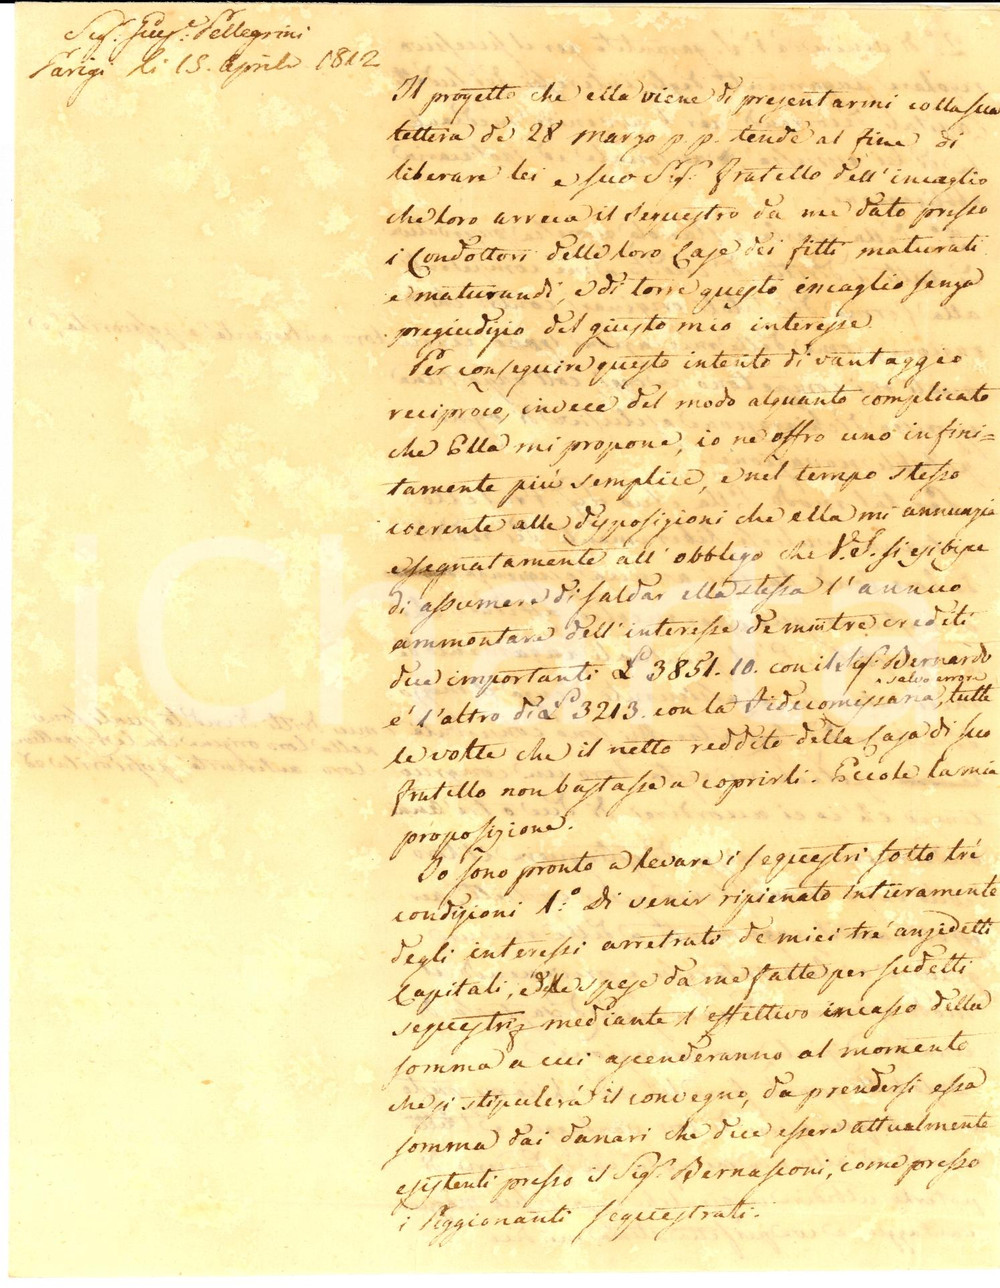 Sig.r Gius.e Pellegrini
Parigi li 15. Aprile 1812
Il progetto che ella viene di presentarmi colla sua
lettera de 28 marzo p.p. tende al fine di
liberare lei e suo Sig.r fratello dell'incaglio
che loro arreca il sequestro da me dato presso
i Condottori delle loro Case dei fitti maturati
e maturandi, e di torre questo incaglio senza
pregiudizio del giusto mio interesse
Per conseguire questo intento di vantaggio
reciproco, invece del modo alquanto complicato
che Ella mi propone, io ne offro uno infini=
tamente più semplice, e nel tempo stesso
coerente alle disposizioni che ella mi annunzia
e segnatamente all'obbligo che V.S. si esibisce
di assumere di saldar ella stessa l'annuo
ammontare dell'interesse de miei tre crediti
due importanti £ 3851.10. con il Sig.r Bernardo
salvo errore
e l'altro di £ 3213. con la Fidecomissaria, tutte
le volte che il netto reddito della Casa di suo
fratello non bastasse a coprirli. Eccole la mia
proposizione.
Io sono pronto a levare i sequestri sotto tré
condizioni 1.° Di venir ripienato intieramente
degli interessi arretrati de miei tré anzidetti
Capitali, e delle spese da me fatte per sudetti
sequestri, mediante l'effettivo incasso della
somma a cui ascenderanno al momento
che si stipulerà il convegno, da prendersi essa
somma dai danari che dice essere attualmente
esistenti presso il Sig.r Bernasconi, come presso
i Peggionanti sequestrati.
iCharta